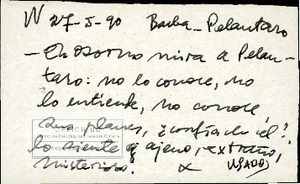 N 27-5-90 Barba-Pelantaro
- En Osorno mira a Pelan-
taro: no lo conoce, no
lo entiende, no conoce
sus planes, ¿confía en él?
lo siente aj ajeno, extraño,
misterioso. x USADO